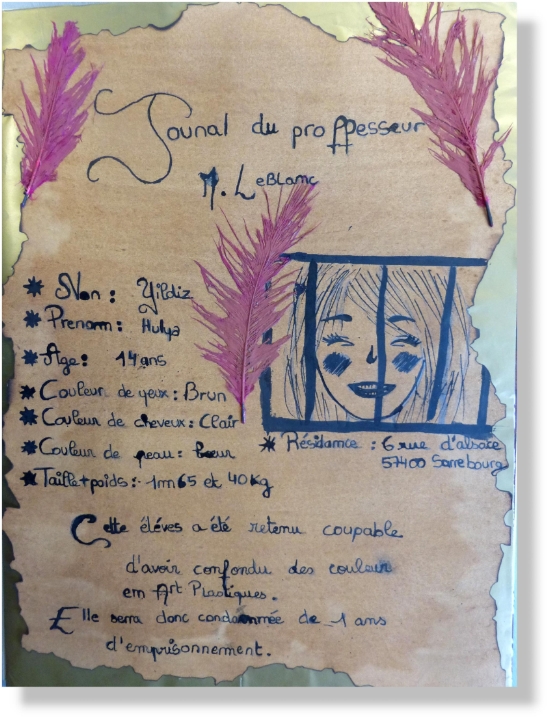 Jounal du proffesseur
M. LeBlanc
Nom : Yildiz
Prenom : Hulya
Age : 14 ans
Couleur de yeux : Brun
Couleur de cheveux : Clair
Couleur de peau :
Taille + poids : 1m65 et 40 kg
Résidamce : 6 rue d'alsace
57400 Sarrebourg
Cette éléves a été retenu coupable
d'avoir confondu des couleur
em Art Plastiques.
Elle sera donc condammée de 1 ans
d'emprisonnement.